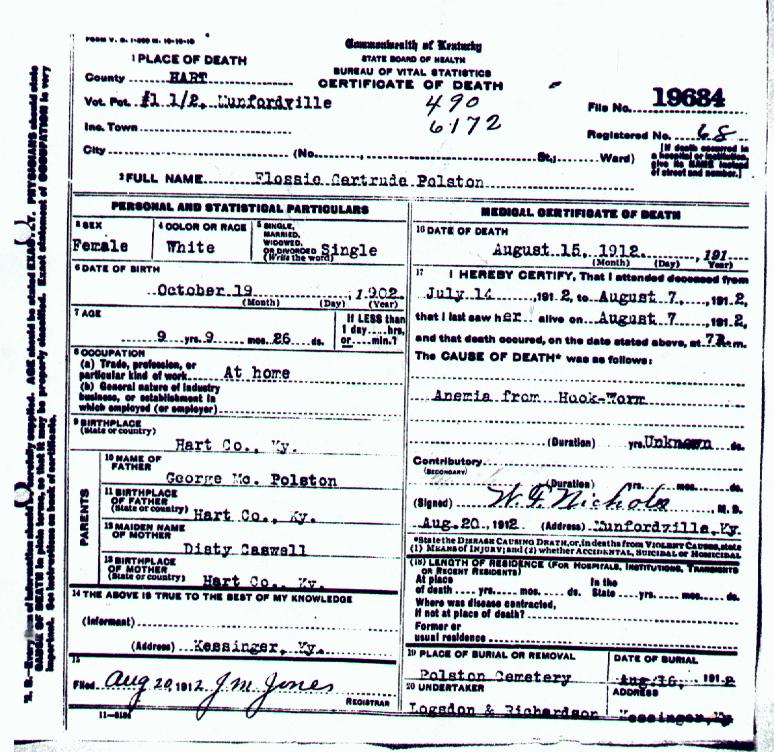 FORM V. S. 1-
Commonwealth of Kentucky
STATE BOARD OF HEALTH
BUREAU OF VITAL STATISTICS
CERTIFICATE OF DEATH
1 PLACE OF DEATH
County HART
Vot. Pot. #1 1/2, Munfordville
490
6172
File No. 19684
Inc. Town
Registered No. 68
City (No. , St.; Ward)
[If death occurred in a hospital or institution, give its NAME instead of street and number.]
2 FULL NAME Flossie Gertrude Polston
PERSONAL AND STATISTICAL PARTICULARS
3 SEX
Female
4 COLOR OR RACE
White
5 SINGLE, MARRIED, WIDOWED, OR DIVORCED
(Write the word)
Single
6 DATE OF BIRTH
October 19 , 1902.
(Month) (Day) (Year)
7 AGE
9 yrs. 9 mos. 26 ds.
If LESS than 1 day....hrs. or....min.?
8 OCCUPATION
(a) Trade, profession, or particular kind of work At home
(b) General nature of industry business, or establishment in which employed (or employer)
9 BIRTHPLACE
(State or country)
Hart Co., Ky.
PARENTS
10 NAME OF FATHER
George Mc. Polston
11 BIRTHPLACE OF FATHER
(State or country) Hart Co., Ky.
12 MAIDEN NAME OF MOTHER
Disty Caswell
13 BIRTHPLACE OF MOTHER
(State or country) Hart Co., Ky.
14 THE ABOVE IS TRUE TO THE BEST OF MY KNOWLEDGE
(Informant)
(Address) Kessinger, Ky.
15
Filed Aug 20, 1912 J M Jones
REGISTRAR
MEDICAL CERTIFICATE OF DEATH
16 DATE OF DEATH
August 15, 1912 , 191
(Month) (Day) Year)
17 I HEREBY CERTIFY, That I attended deceased from
July 14 ,191 2, to August 7, ,191 2,
that I last saw her alive on August 7, ,191 2,
and that death occured, on the date stated above, at m.
The CAUSE OF DEATH* was as follows:
Anemia from Hook-Worm
(Duration) yrs. Unknown ds.
Contributory
(SECONDARY)
(Duration) yrs. mos. ds.
(Signed) W. F. Nichols , M. D.
Aug. 20, 1912 (Address) Munfordville, Ky.
*State the DISEASE CAUSING DEATH, or, in deaths from VIOLENT CAUSES, state
(1) MEANS OF INJURY; and (2) whether ACCIDENTAL, SUICIDAL or HOMICIDAL
(18) LENGTH OF RESIDENCE (FOR HOSPITALS, INSTITUTIONS, TRANSIENTS OR RECENT RESIDENTS)
At place of death yrs. mos. ds. In the State yrs. mos. ds.
Where was disease contracted,
if not at place of death?
Former or
usual residence
19 PLACE OF BURIAL OR REMOVAL
Polston Cemetery
DATE OF BURIAL
Aug. 16, 191 2
20 UNDERTAKER
Logsdon & Richardson
ADDRESS
Kessinger, Ky